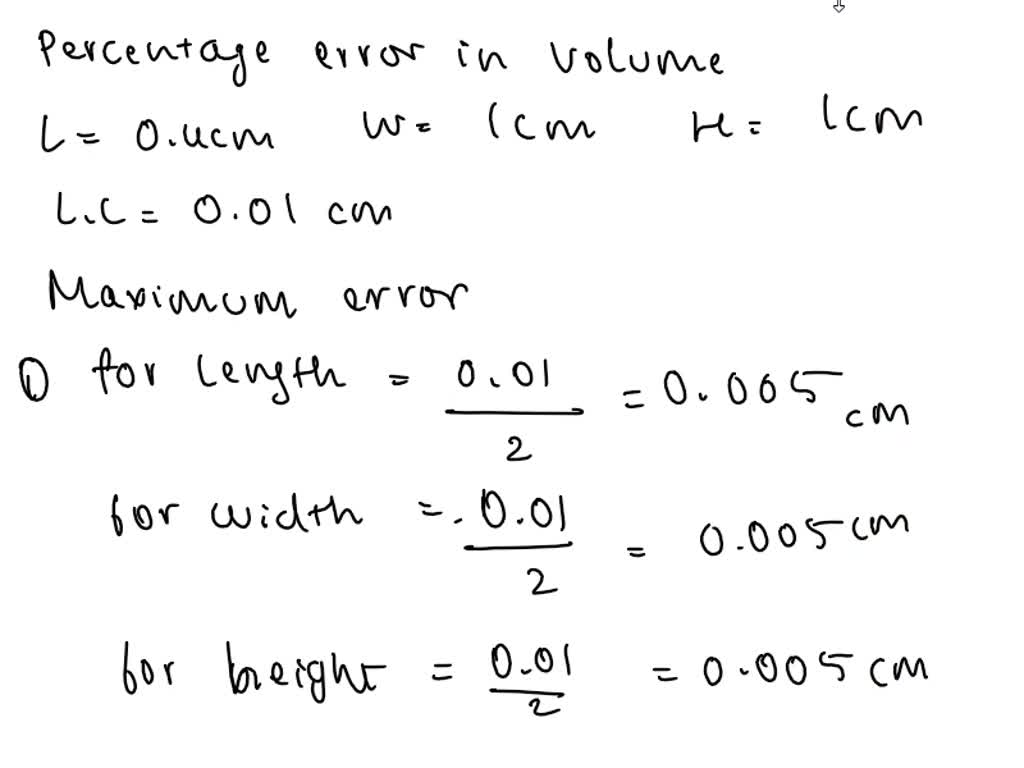 Percentage error in volume
L = 0.4cm W = 1cm H = 1cm
L.C = 0.01 cm
Maximum error
① for length = 0.01/2 = 0.005 cm
for width = 0.01/2 = 0.005 cm
for height = 0.01/2 = 0.005 cm